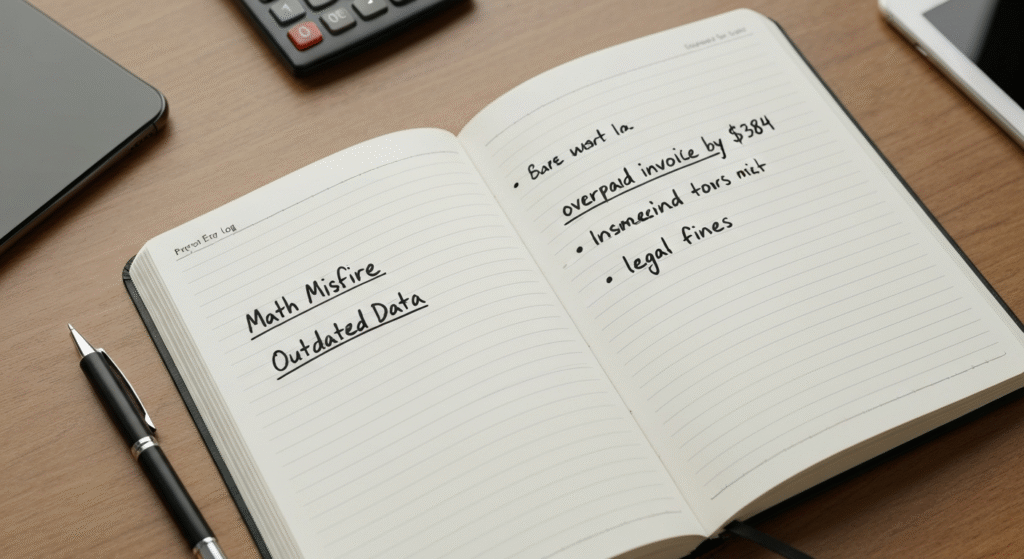 Log
Math Misfire
Outdated Data
• Bare wort la
overpaid invoice by $384
• Insmeeind tors mict
• legal fines
0